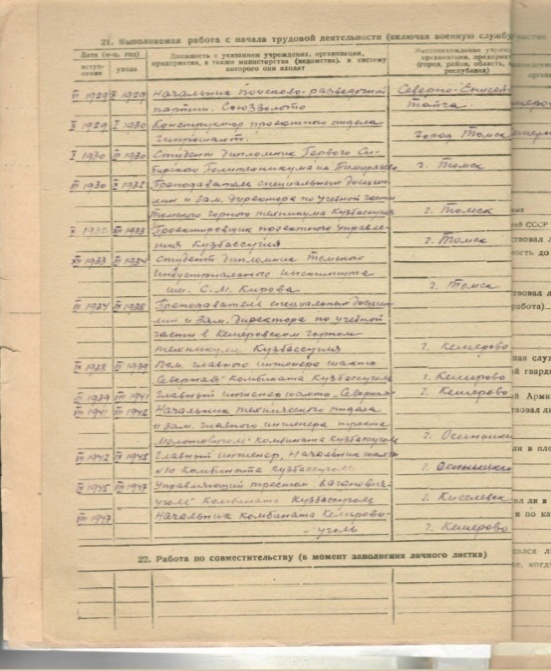 21. Выполняемая работа с начала трудовой деятельности (включая военную службу
Дата (м-ц, год)
вступления
ухода
Должность с указанием учреждения, организации, предприятия, а также министерства (ведомства), в систему которого они входят
Местонахождение
организации,
(город, район, область, республика)
1929 1929 Начальник поисково-разведочной Северо-Енисей
партии. Союззолото тайга.
1929 1930 Конструктор проектного отдела
Гипрошахт. город Томск
1930 1930 Студент дипломник Первого Си-
бирского Политехникума им Тимирязева г. Томск
1930 Преподаватель специальных дисцип
лин и зам. директора по учебной части
Томского горного техникума Кузбассугля г. Томск
1933 Проектировщик проектного управле-
ния Кузбассугля г. Томск
1933 1934 Студент дипломник Томского
Индустриального института
им. С. М. Кирова г. Томск
1934 1938 Преподаватель специальных дисцип
лин и Зам. Директора по учебной
части в Кемеровском горном
техникуме Кузбассугля г. Кемерово
1938 1939 Пом. главного инженера шахты
Северная" комбината Кузбассуголь г. Кемерово
1939 1941 Главный инженер шахты „Северная" г. Кемерово
1941 1942 Начальник технического отдела
и зам. главного инженера треста
Молотовуголь" комбината Кузбассуголь г. Осинники
1942 1945 Главный инженер, Начальник шахты
№10 комбината Кузбассуголь г. Осинники
1945 1947 Управляющий трестом Каганович-
уголь" комбината Кузбассуголь г. Киселевск
1947 Начальник комбината Кемерово-
уголь г. Кемерово
22. Работа по совместительству (в момент заполнения личного листка)